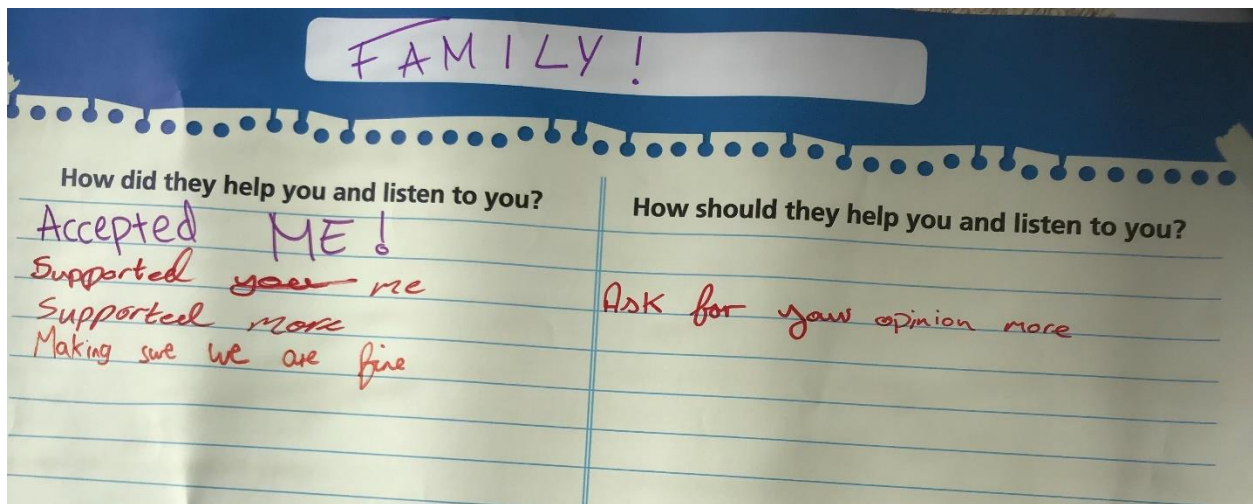 FAMILY!
How did they help you and listen to you?
Accepted ME!
Supported you me
Supported more
Making sure we are fine
How should they help you and listen to you?
Ask for your opinion more